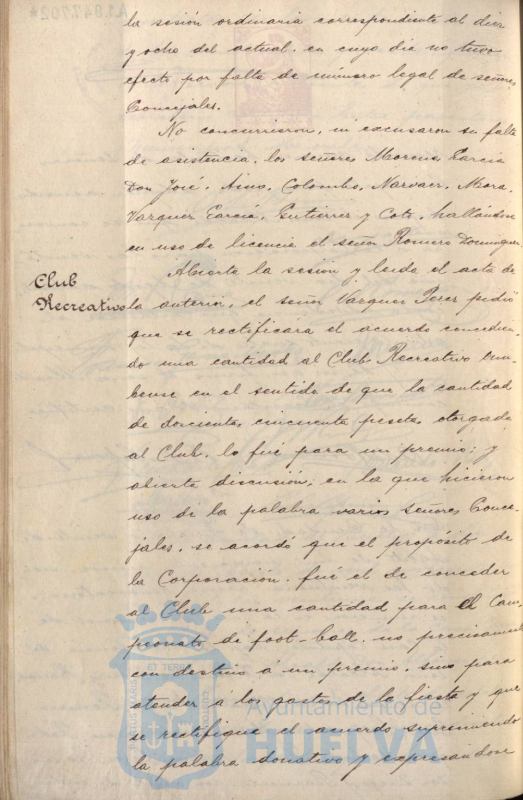 A1947702*
la sesión ordinaria correspondiente al diez
y ocho del actual, en cuyo dia no tuvo
efecto por falta de número legal de señores
Concejales.
No concurrieron, ni excusaron su falta
de asistencia, los señores Moreno, Garcia
Don José, Colombo, Narvaez, Mora,
Vazquez Garcia, Gutierrez y Coto, hallándose
en uso de licencia el señor Romero Dominguez
Abierta la sesión y leida el acta de
Club
Recreativo
la anterior, el señor Vazquez Perez pidió
que se rectificara el acuerdo concedien-
do una cantidad al Club Recreativo Onu-
bense en el sentido de que la cantidad
de doscientas cincuenta pesetas otorgada
al Club, lo fué para un premio; y
abierta discusión, en la que hicieron
uso de la palabra varios señores Conce-
jales, se acordó que el propósito de
la Corporación, fué el de conceder
al Club una cantidad para el Cam-
peonato de foot-ball, no precisamente
con destino á un premio, sino para
atender á los gastos de la fiesta y que
se rectifique el acuerdo suprimiendo
la palabra donativo y expresándose
Ayuntamiento de
HUELVA